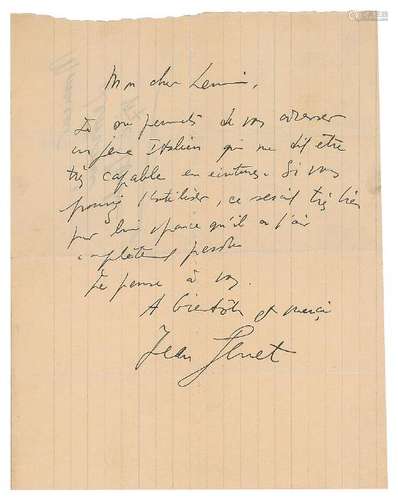 Mon cher
Je me permets de vous adresser
un jeune Italien qui me dit être
très capable en peintures. Si vous
pouviez l'utiliser, ce serait très bien
pour lui parce qu'il a l'air
complètement perdu.
Je pense à vous.
A bientôt et merci
Jean Genet